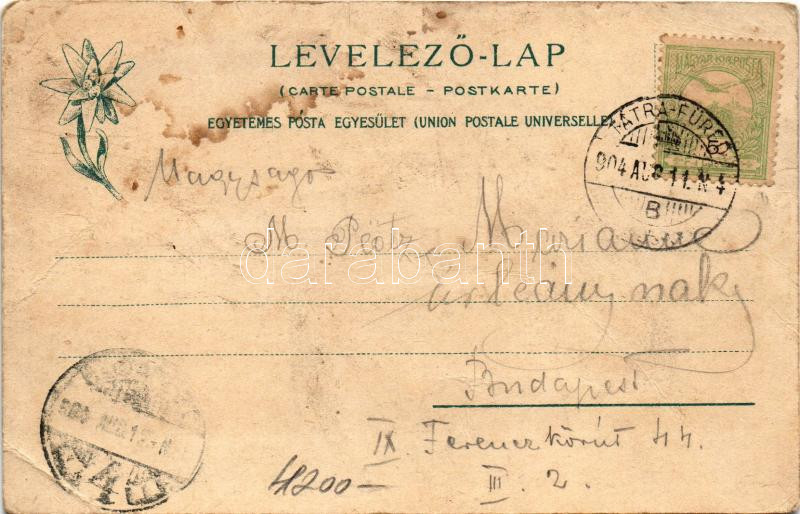 LEVELEZŐ-LAP
(CARTE POSTALE – POSTKARTE)
EGYETEMES POSTA EGYESÜLET (UNION POSTALE UNIVERSELLE)
MAGYAR KIR. POSTA
TÁTRA-FÜRED
904 AUG 11. N 4
B
Nagysagos
M. Plotz Marianne
úrleánynak
Budapest
IX Ferenczkörút 44.
III. 2.
4200–
904 AUG
darabanth